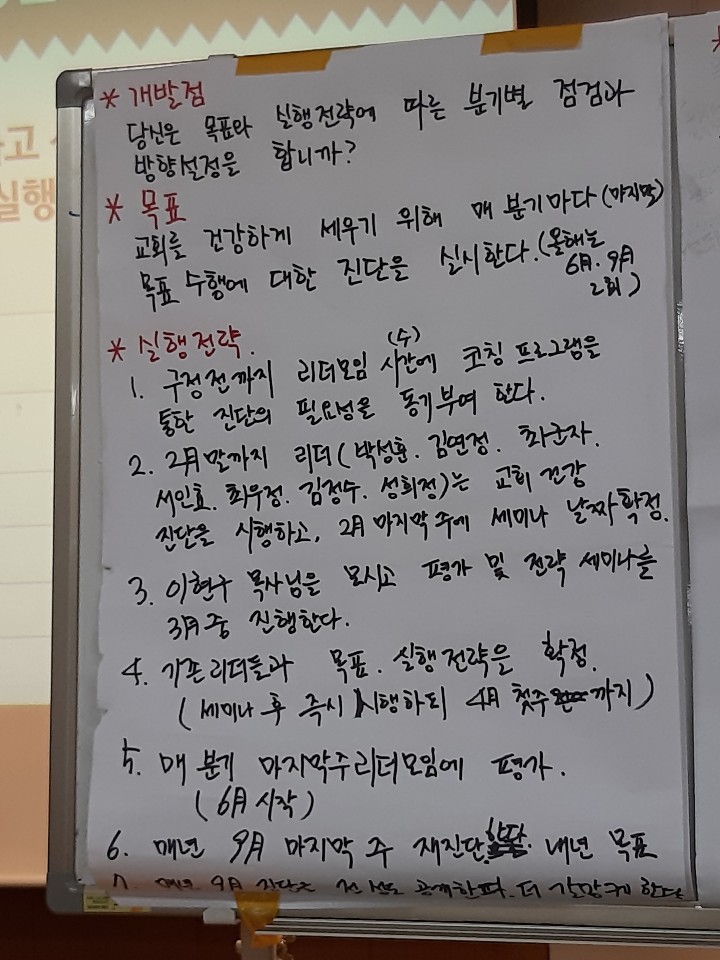 고
실행
* 개발점
당신은 목표와 실행전략에 따른 분기별 점검과
방향설정을 합니까?
* 목표
교회를 건강하게 세우기 위해 매 분기마다 (마지막)
목표 수행에 대한 진단을 실시한다. (올해는
6月. 9月
2회)
* 실행전략.
(수)
1. 구정전까지 리더모임 시간에 코칭 프로그램을
통한 진단의 필요성을 동기부여 한다.
2. 2月말까지 리더 (박성훈. 김연정. 최군자.
서인호. 최우정. 김정수. 성희정)는 교회 건강
진단을 시행하고, 2月 마지막 주에 세미나 날짜 확정.
3. 이현구 목사님을 모시고 평가 및 전략 세미나를
3月중 진행한다.
4. 기존리더들과 목표. 실행전략을 확정.
(세미나 후 즉시 시행하되 4月 첫주 까지)
5. 매 분기 마지막주 리더모임에 평가.
(6月 시작)
6. 매년 9月 마지막 주 재진단 내년 목표
7. 매년 9月 진단은 전 성도 공개한다. 더 갈망케 한다